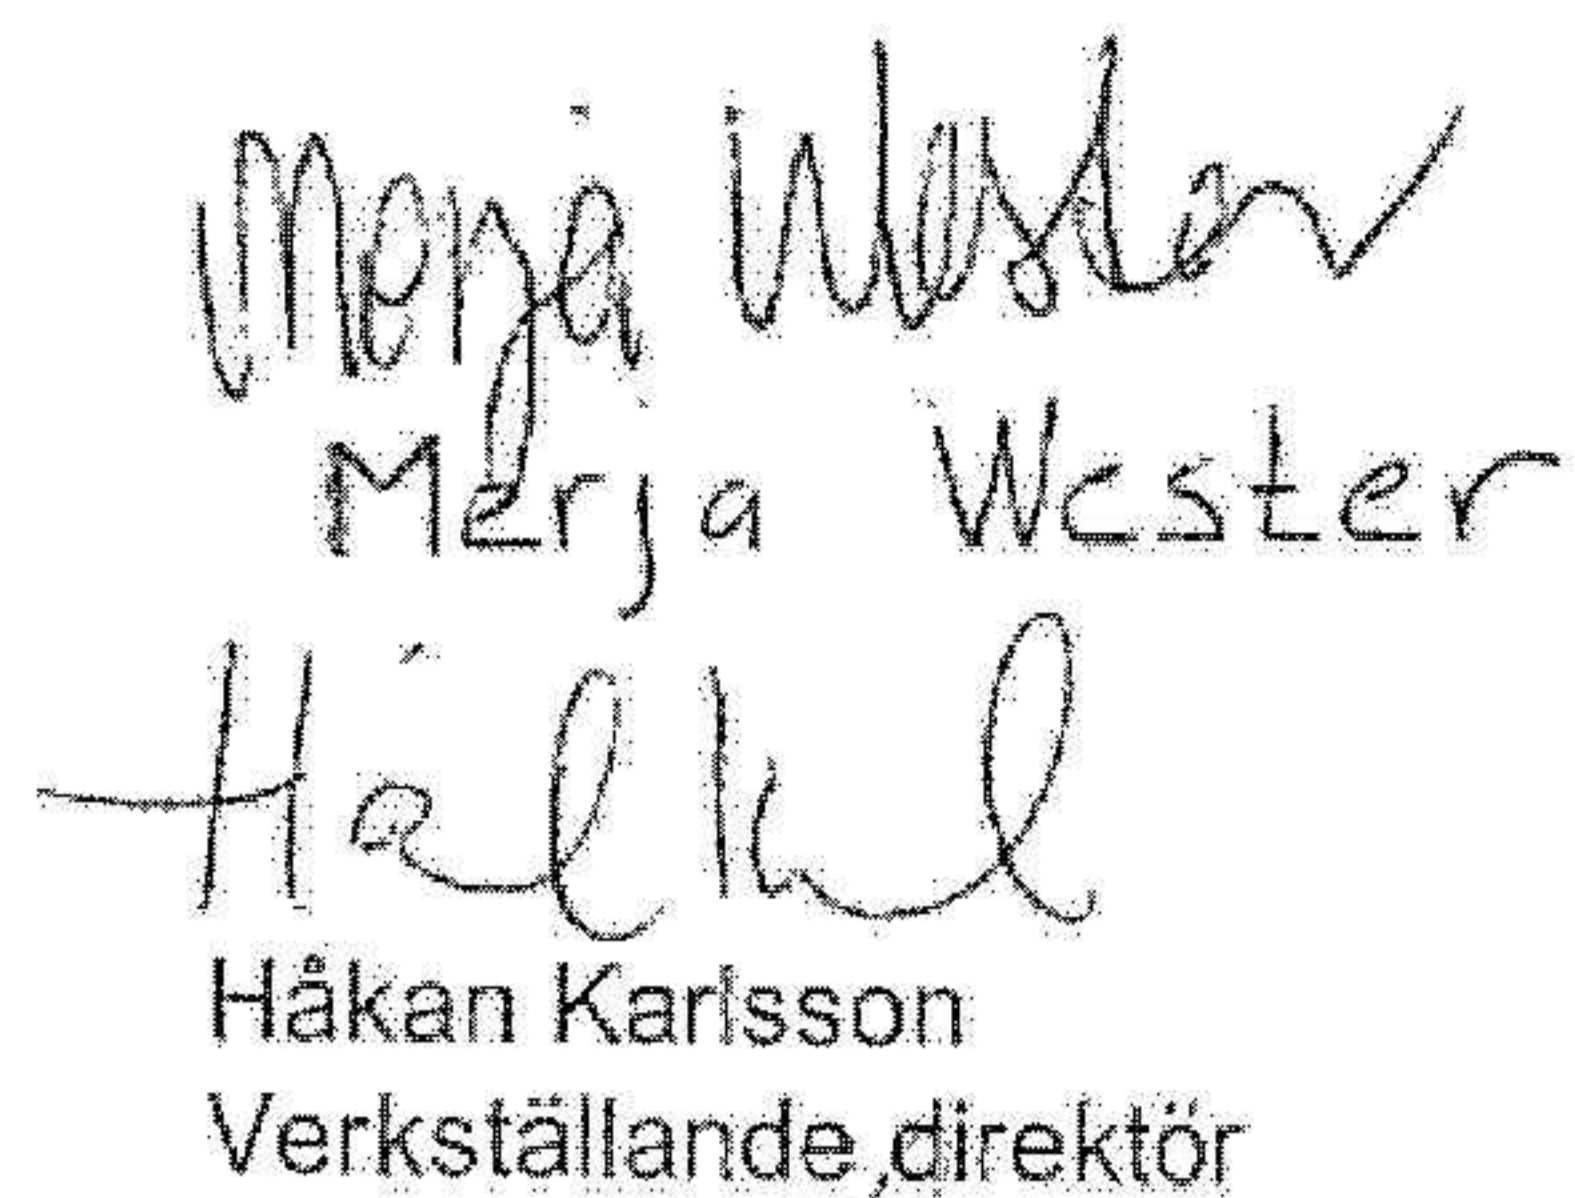 Merja Wester
Merja Wester
Håkan Karlsson
Verkställande direktör